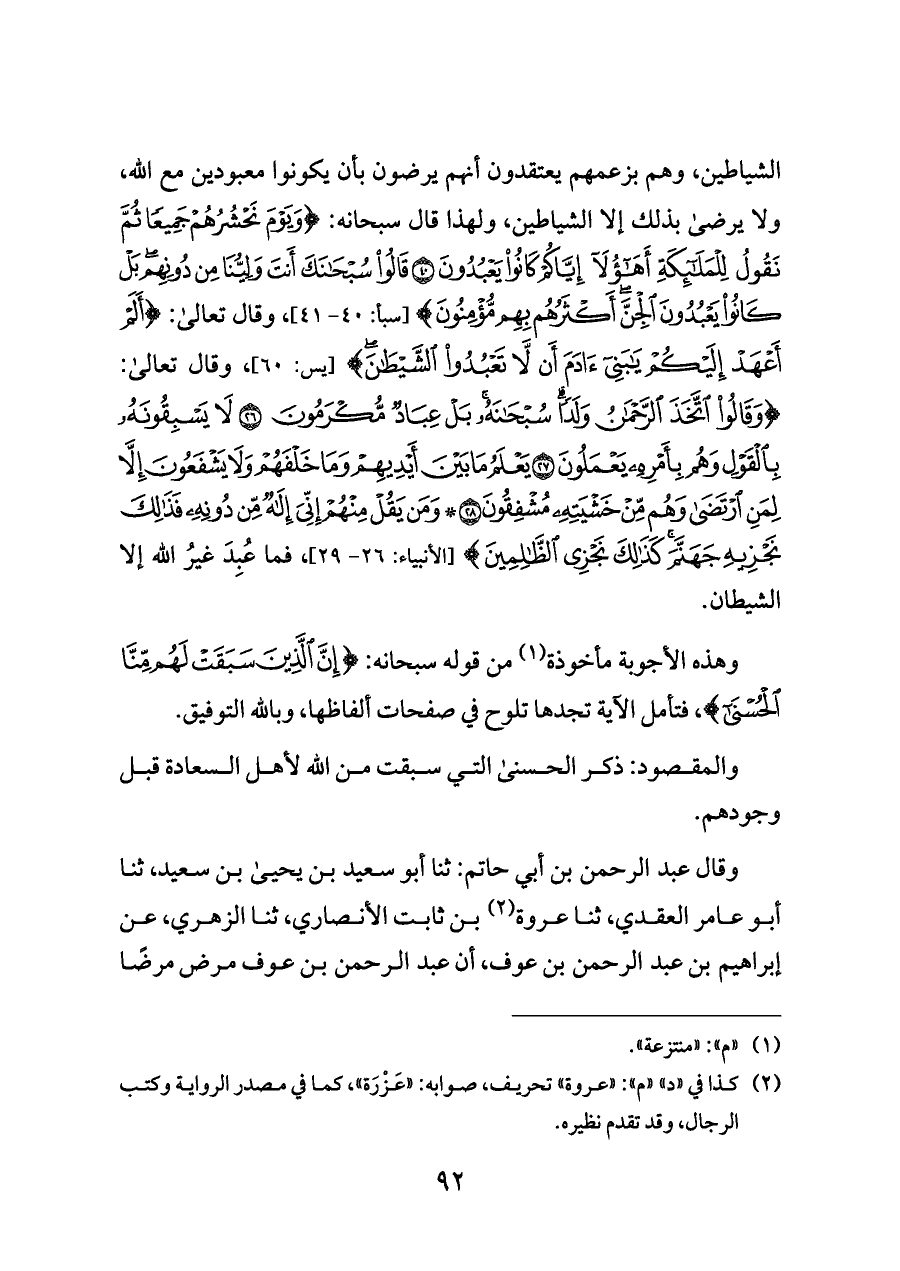 الشياطين، وهم بزعمهم يعتقدون أنهم يرضون بأن يكونوا معبودين مع الله،
ولا يرضىٰ بذلك إلا الشياطين، ولهذا قال سبحانه: ﴿وَيَوْمَ نَحْشُرُهُمْ جَمِيعًا ثُمَّ
نَقُولُ لِلْمَلَٰٓئِكَةِ أَهَٰٓؤُلَآ إِيَّاكُمْ كَانُوا۟ يَعْبُدُونَ ۝٤٠ قَالُوا۟ سُبْحَٰنَكَ أَنتَ وَلِيُّنَا مِن دُونِهِمۖ بَلْ
كَانُوا۟ يَعْبُدُونَ ٱلْجِنَّۖ أَكْثَرُهُم بِهِم مُّؤْمِنُونَ﴾ [سبأ: ٤٠- ٤١]، وقال تعالىٰ: ﴿أَلَمْ
أَعْهَدْ إِلَيْكُمْ يَٰبَنِىٓ ءَادَمَ أَن لَّا تَعْبُدُوا۟ ٱلشَّيْطَٰنَۖ﴾ [يس: ٦٠]، وقال تعالىٰ:
﴿وَقَالُوا۟ ٱتَّخَذَ ٱلرَّحْمَٰنُ وَلَدًاۗ سُبْحَٰنَهُۥۚ بَلْ عِبَادٌ مُّكْرَمُونَ ۝٢٦ لَا يَسْبِقُونَهُۥ
بِٱلْقَوْلِ وَهُم بِأَمْرِهِۦ يَعْمَلُونَ ۝٢٧ يَعْلَمُ مَا بَيْنَ أَيْدِيهِمْ وَمَا خَلْفَهُمْ وَلَا يَشْفَعُونَ إِلَّا
لِمَنِ ٱرْتَضَىٰ وَهُم مِّنْ خَشْيَتِهِۦ مُشْفِقُونَ ۝٢٨ * وَمَن يَقُلْ مِنْهُمْ إِنِّىٓ إِلَٰهٌ مِّن دُونِهِۦ فَذَٰلِكَ
نَجْزِيهِ جَهَنَّمَۚ كَذَٰلِكَ نَجْزِى ٱلظَّٰلِمِينَ﴾ [الأنبياء: ٢٦- ٢٩]، فما عُبِدَ غيرُ الله إلا
الشيطان.
وهذه الأجوبة مأخوذة(١) من قوله سبحانه: ﴿إِنَّ ٱلَّذِينَ سَبَقَتْ لَهُم مِّنَّا
ٱلْحُسْنَىٰٓ﴾، فتأمل الآية تجدها تلوح في صفحات ألفاظها، وبالله التوفيق.
والمقصود: ذكر الحسنىٰ التي سبقت من الله لأهل السعادة قبل
وجودهم.
وقال عبد الرحمن بن أبي حاتم: ثنا أبو سعيد بن يحيىٰ بن سعيد، ثنا
أبو عامر العقدي، ثنا عروة(٢) بن ثابت الأنصاري، ثنا الزهري، عن
إبراهيم بن عبد الرحمن بن عوف، أن عبد الرحمن بن عوف مرض مرضًا
(١) «م»: «منتزعة».
(٢) كذا في «د» «م»: «عروة» تحريف، صوابه: «عَزْرَة»، كما في مصدر الرواية وكتب
الرجال، وقد تقدم نظيره.
٩٢